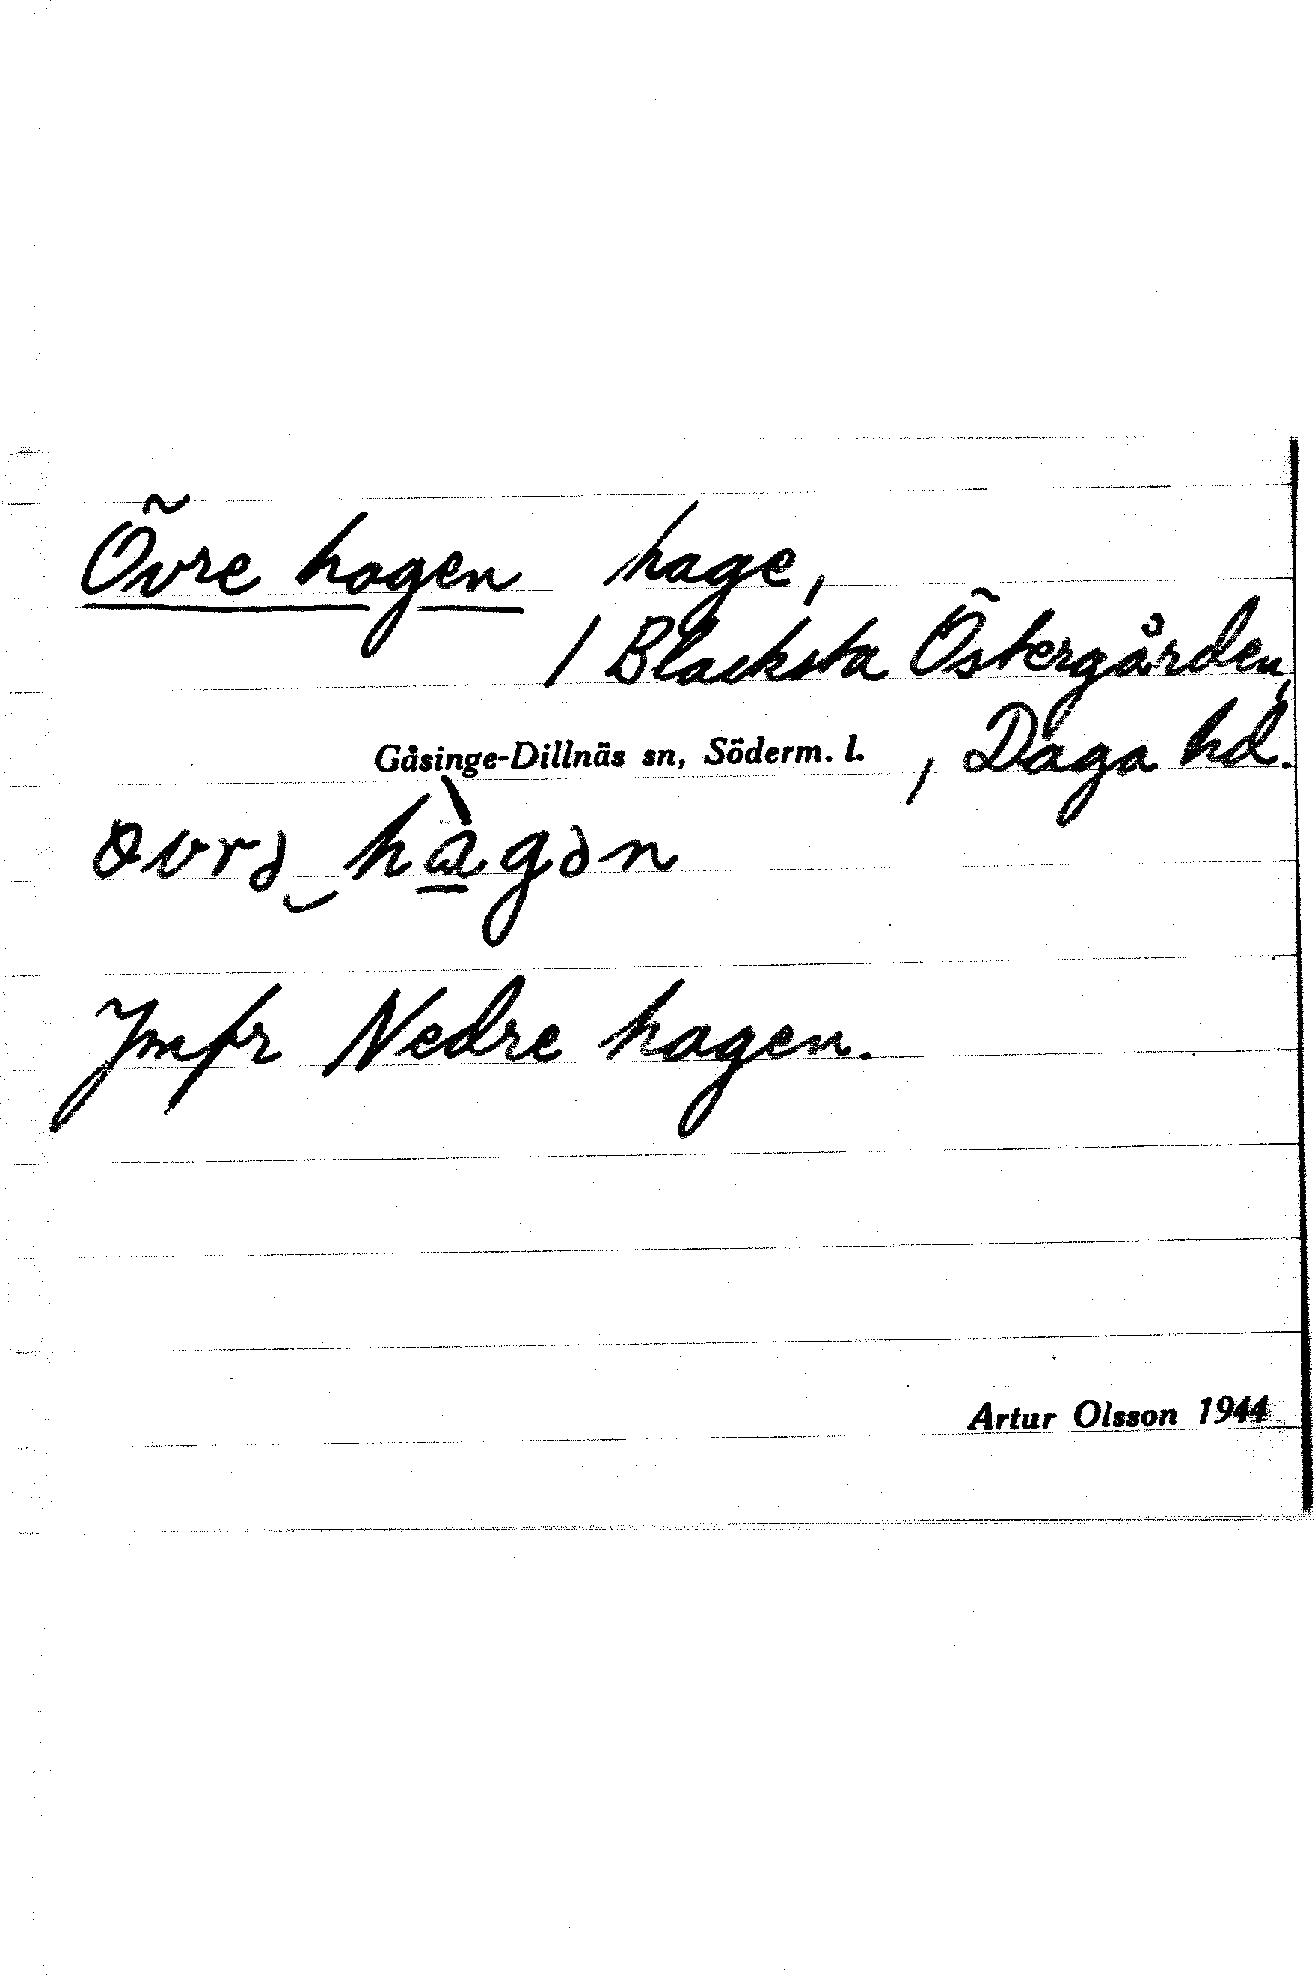 Övre hagen hage,
/ Blacksta Östergården,
Gåsinge-Dillnäs sn, Söderm. l. , Daga hd.
øvrə hàgən
Jmfr Nedre hagen.
Artur Olsson 1944